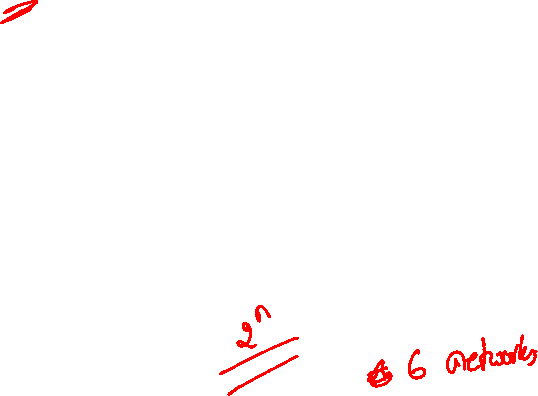 2ⁿ
6 networks